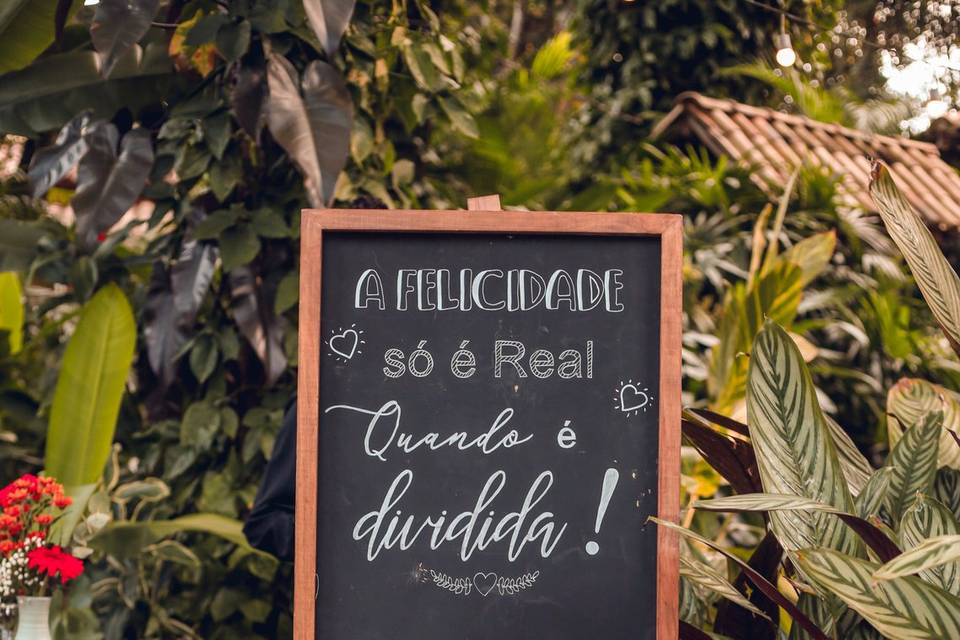 A FELICIDADE
só é Real
Quando é
dividida!